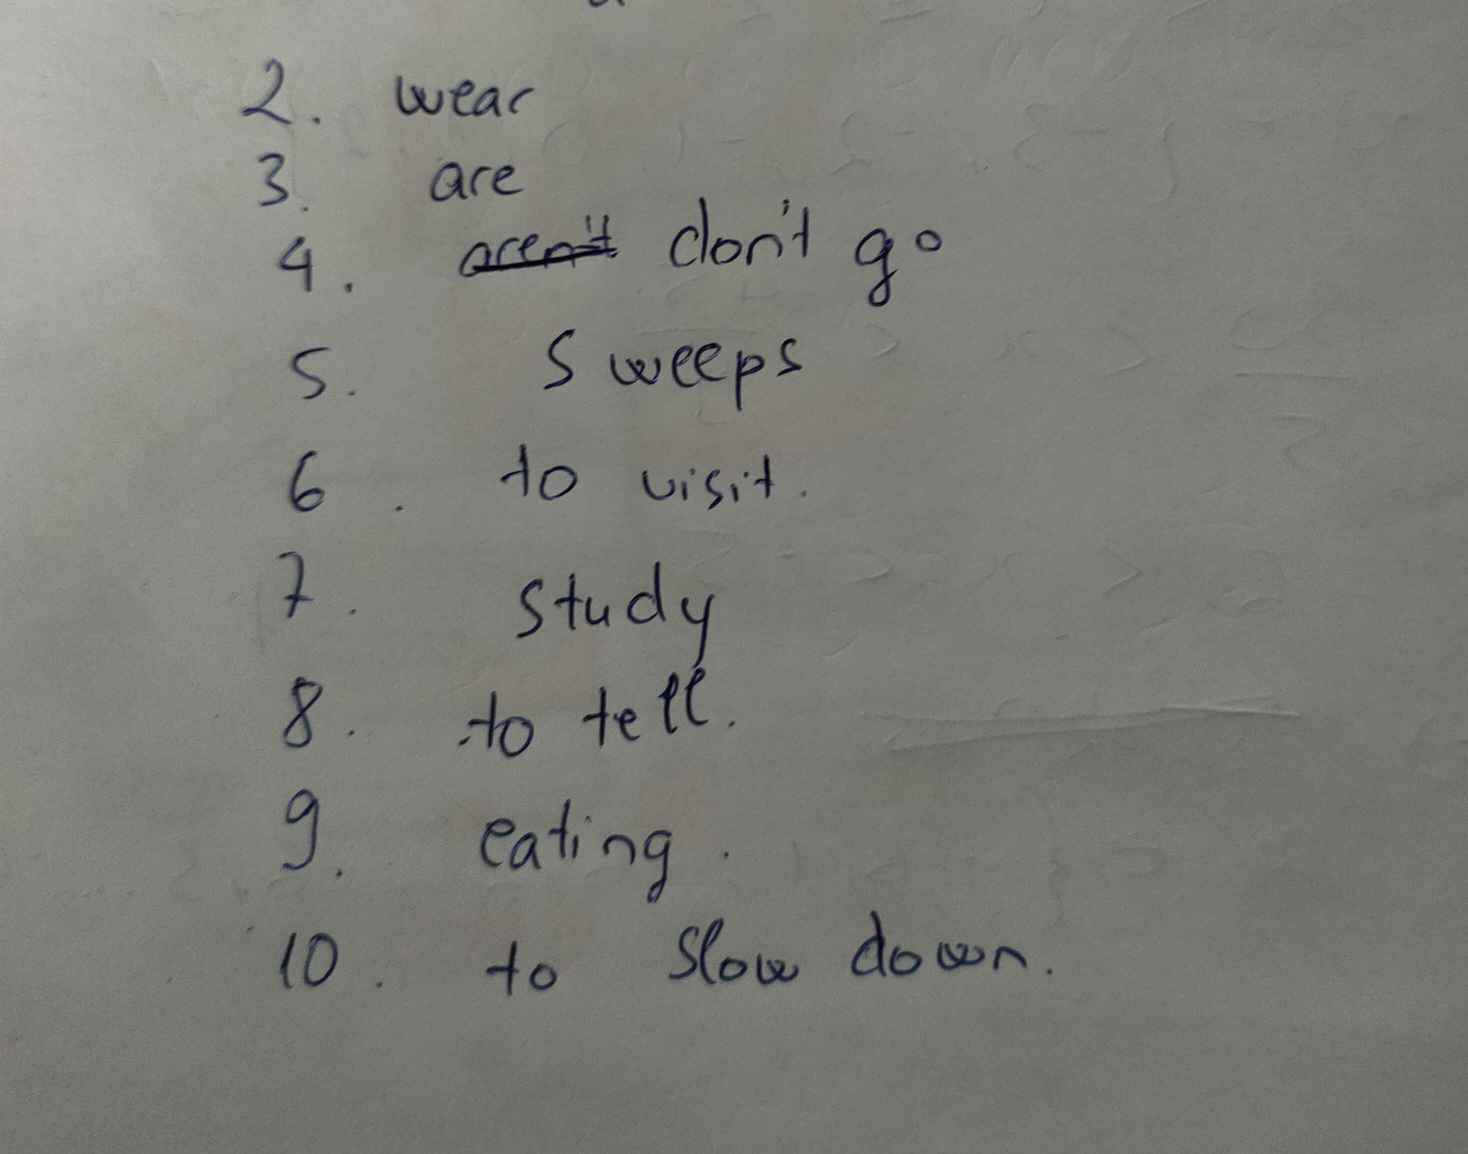 2. wear
3. are
4. aren't don't go
5. Sweeps
6. to visit.
7. study
8. to tell.
9. eating.
10. to slow down.